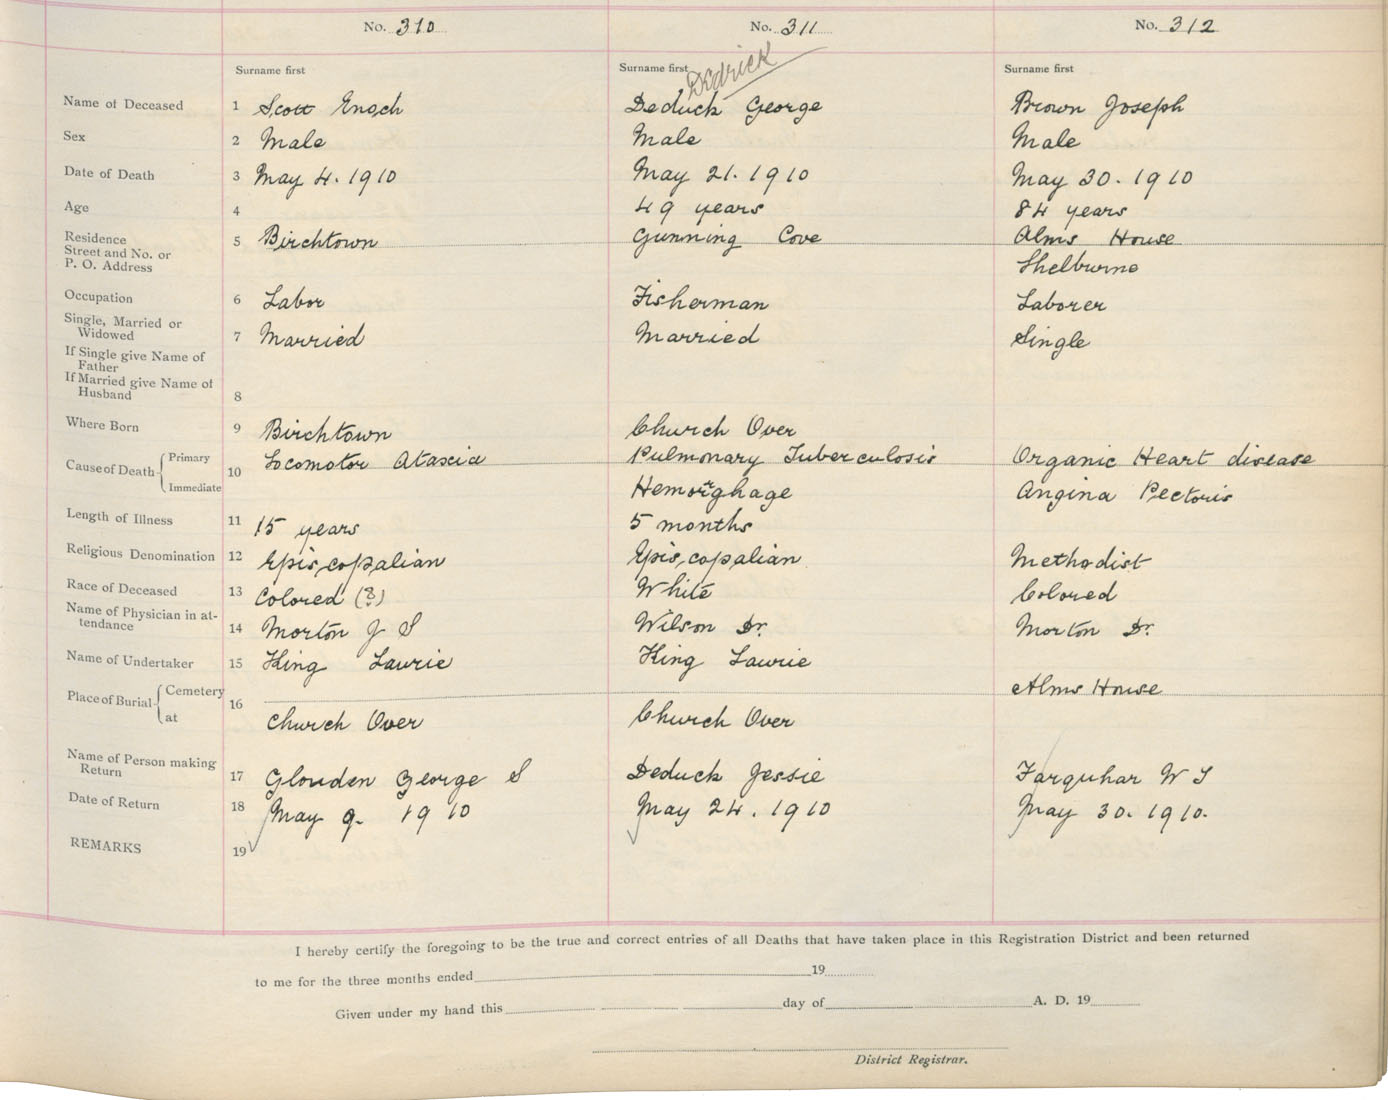 No. 310 No. 311 No. 312
Surname first Surname first Dedrick Surname first
Name of Deceased 1 Scott Enoch Deduck George Brown Joseph
Sex 2 Male Male Male
Date of Death 3 May 4. 1910 May 21. 1910 May 30. 1910
Age 4 49 years 84 years
Residence 5 Birchtown Gunning Cove Alms House
Street and No. or
P. O. Address Shelburne
Occupation 6 Labor Fisherman Laborer
Single, Married or
Widowed 7 Married Married Single
If Single give Name of
Father
If Married give Name of
Husband 8
Where Born 9 Birchtown Church Over
Cause of Death Primary 10 Locomotor Ataxia Pulmonary Tuberculosis Organic Heart disease
Immediate Hemorrghage Angina Pectoris
Length of Illness 11 15 years 5 months
Religious Denomination 12 Episcopalian Episcopalian Methodist
Race of Deceased 13 Colored (?) White Colored
Name of Physician in at-
tendance 14 Morton J S Wilson Dr. Morton Dr.
Name of Undertaker 15 King Laurie King Laurie
Place of Burial Cemetery 16 Alms House
at Church Over Church Over
Name of Person making
Return 17 Glouden George S Deduck Jessie Farquhar W T
Date of Return 18 May 9. 1910 May 24. 1910 May 30. 1910.
REMARKS 19
I hereby certify the foregoing to be the true and correct entries of all Deaths that have taken place in this Registration District and been returned
to me for the three months ended 19
Given under my hand this day of A. D. 19
District Registrar.